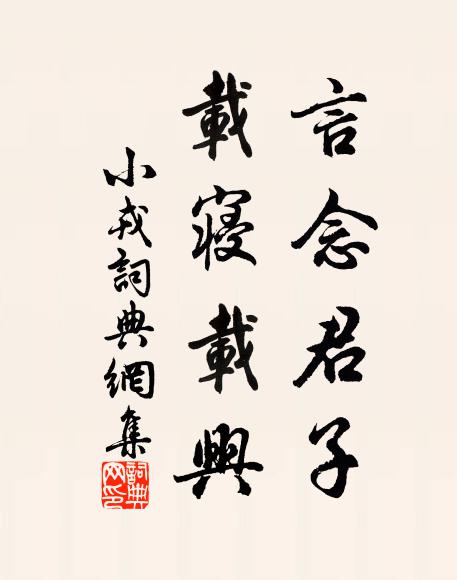 言念君子
載寝載興
小戎詞典網集
詞典網印